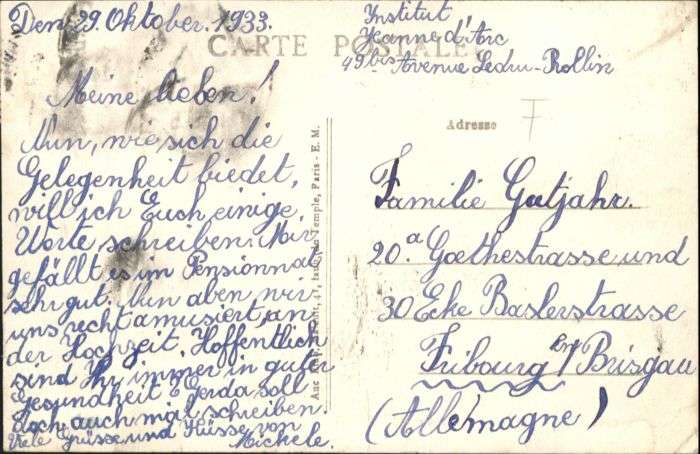 Den 29. Oktober. 1933.
Institut
Jeanne d'Arc
49 bis Avenue Ledru-Rollin
CARTE POSTALE
Meine lieben!
Nun, wie sich die
Gelegenheit biedet,
will ich Euch einige
Worte schreiben. Mir
gefällt es im Pensionnat
sehr gut. Nun aben wir
uns recht amusiert, an
der Hochzeit. Hoffentlich
sind Ihr immer in guter
Gesundheit. Gerda soll
doch auch mal schreiben.
Viele Grüsse und Küsse von
Michele.
Temple, Paris - E. M.
Adresse
F
Familie Gutjahr.
20a. Goethestrasse und
30 Ecke Baslerstrasse
Fribourg i/ Brisgau
(Allemagne)